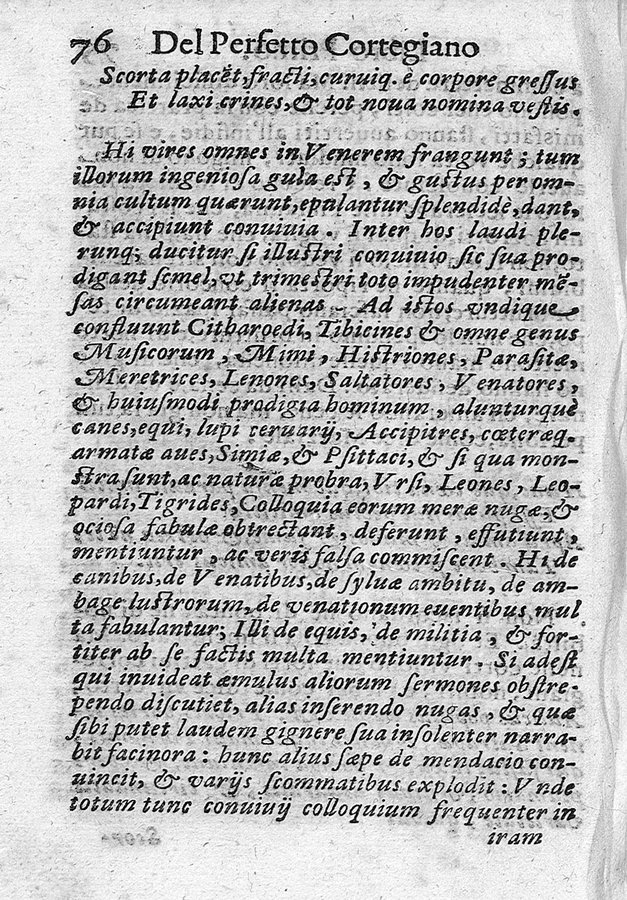 76 Del Perfetto Cortegiano
Scorta placēt, fracti, curuiq. è corpore gressus
Et laxi crines, & tot noua nomina vestis.
Hi vires omnes in Venerem frangunt; tum
illorum ingeniosa gula est, & gustus per om-
nia cultum quærunt, epulantur splendidè, dant,
& accipiunt conuiuia. Inter hos laudi ple-
runq; ducitur si illustri conuiuio sic sua pro-
digant semel, vt trimestri toto impudenter mē-
sas circumeant alienas. Ad istos vndique
confluunt Citharoedi, Tibicines & omne genus
Musicorum, Mimi, Histriones, Parasitæ,
Meretrices, Lenones, Saltatores, Venatores,
& huiusmodi prodigia hominum, alunturquè
canes, equi, lupi ceruarij, Accipitres, cœteræq.
armatæ aues, Simiæ, & Psittaci, & si qua mon-
stra sunt, ac naturæ probra, Vrsi, Leones, Leo-
pardi, Tigrides, Colloquia eorum meræ nugæ, &
ociosa fabulæ obtrectant, deferunt, effutiunt,
mentiuntur, ac veris falsa commiscent. Hi de
canibus, de Venatibus, de syluæ ambitu, de am-
bage lustrorum, de venationum euentibus mul
ta fabulantur; Illi de equis, de militia, & for-
titer ab se factis multa mentiuntur. Si adest
qui inuideat æmulus aliorum sermones obstre-
pendo discutiet, alias inserendo nugas, & quæ
sibi putet laudem gignere sua insolenter narra-
bit facinora: hunc alius sæpe de mendacio con-
uincit, & varijs scommatibus explodit: Vnde
totum tunc conuiuij colloquium frequenter in
iram